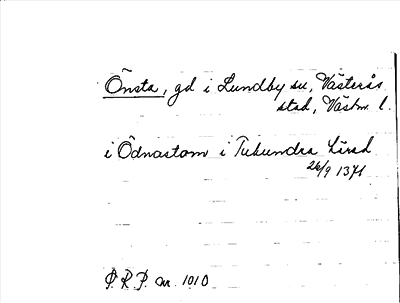 Önsta, gd i Lundby sn, Västerås
stad, Västm. l.
i Ödnastom i Tuhundra hårad
26/9 1371
P. R. P. nr. 1010